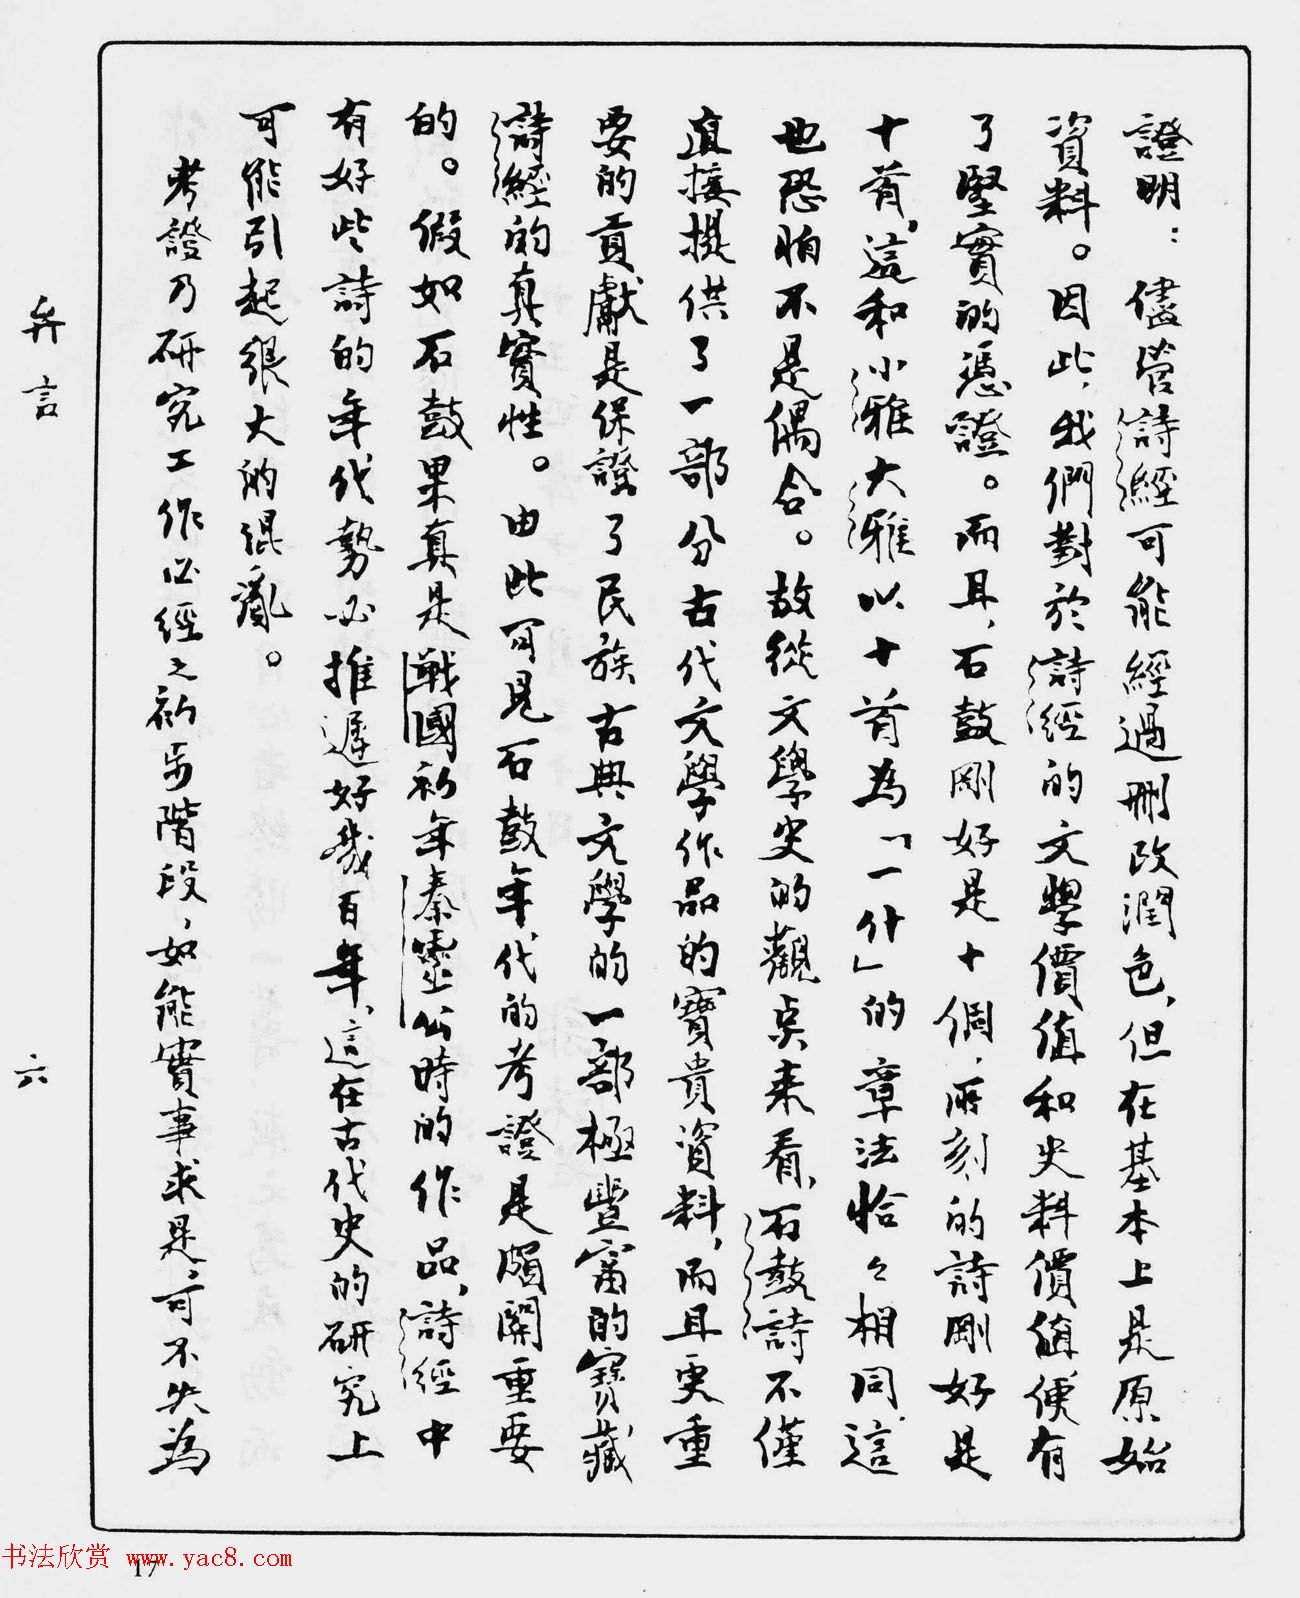 證明：儘管詩經可能經過刪改潤色，但在基本上是原始
資料。因此，我們對於詩經的文學價值和史料價值便有
了堅實的憑證。而且，石鼓剛好是十個，所刻的詩剛好是
十首，這和小雅大雅以十首為「一什」的章法恰々相同，這
也恐怕不是偶合。故從文學史的觀點來看，石鼓詩不僅
直接提供了一部分古代文學作品的寶貴資料，而且更重
要的貢獻是保證了民族古典文學的一部極豐富的寶藏
詩經的真實性。由此可見石鼓年代的考證是頗關重要
的。假如石鼓果真是戰國初年秦靈公時的作品，詩經中
有好些詩的年代勢必推遲好幾百年，這在古代史的研究上
可能引起很大的混亂。
考證乃研究工作必經之初步階段，如能實事求是，可不失為
弁言
六
17
书法欣赏 www.yac8.com